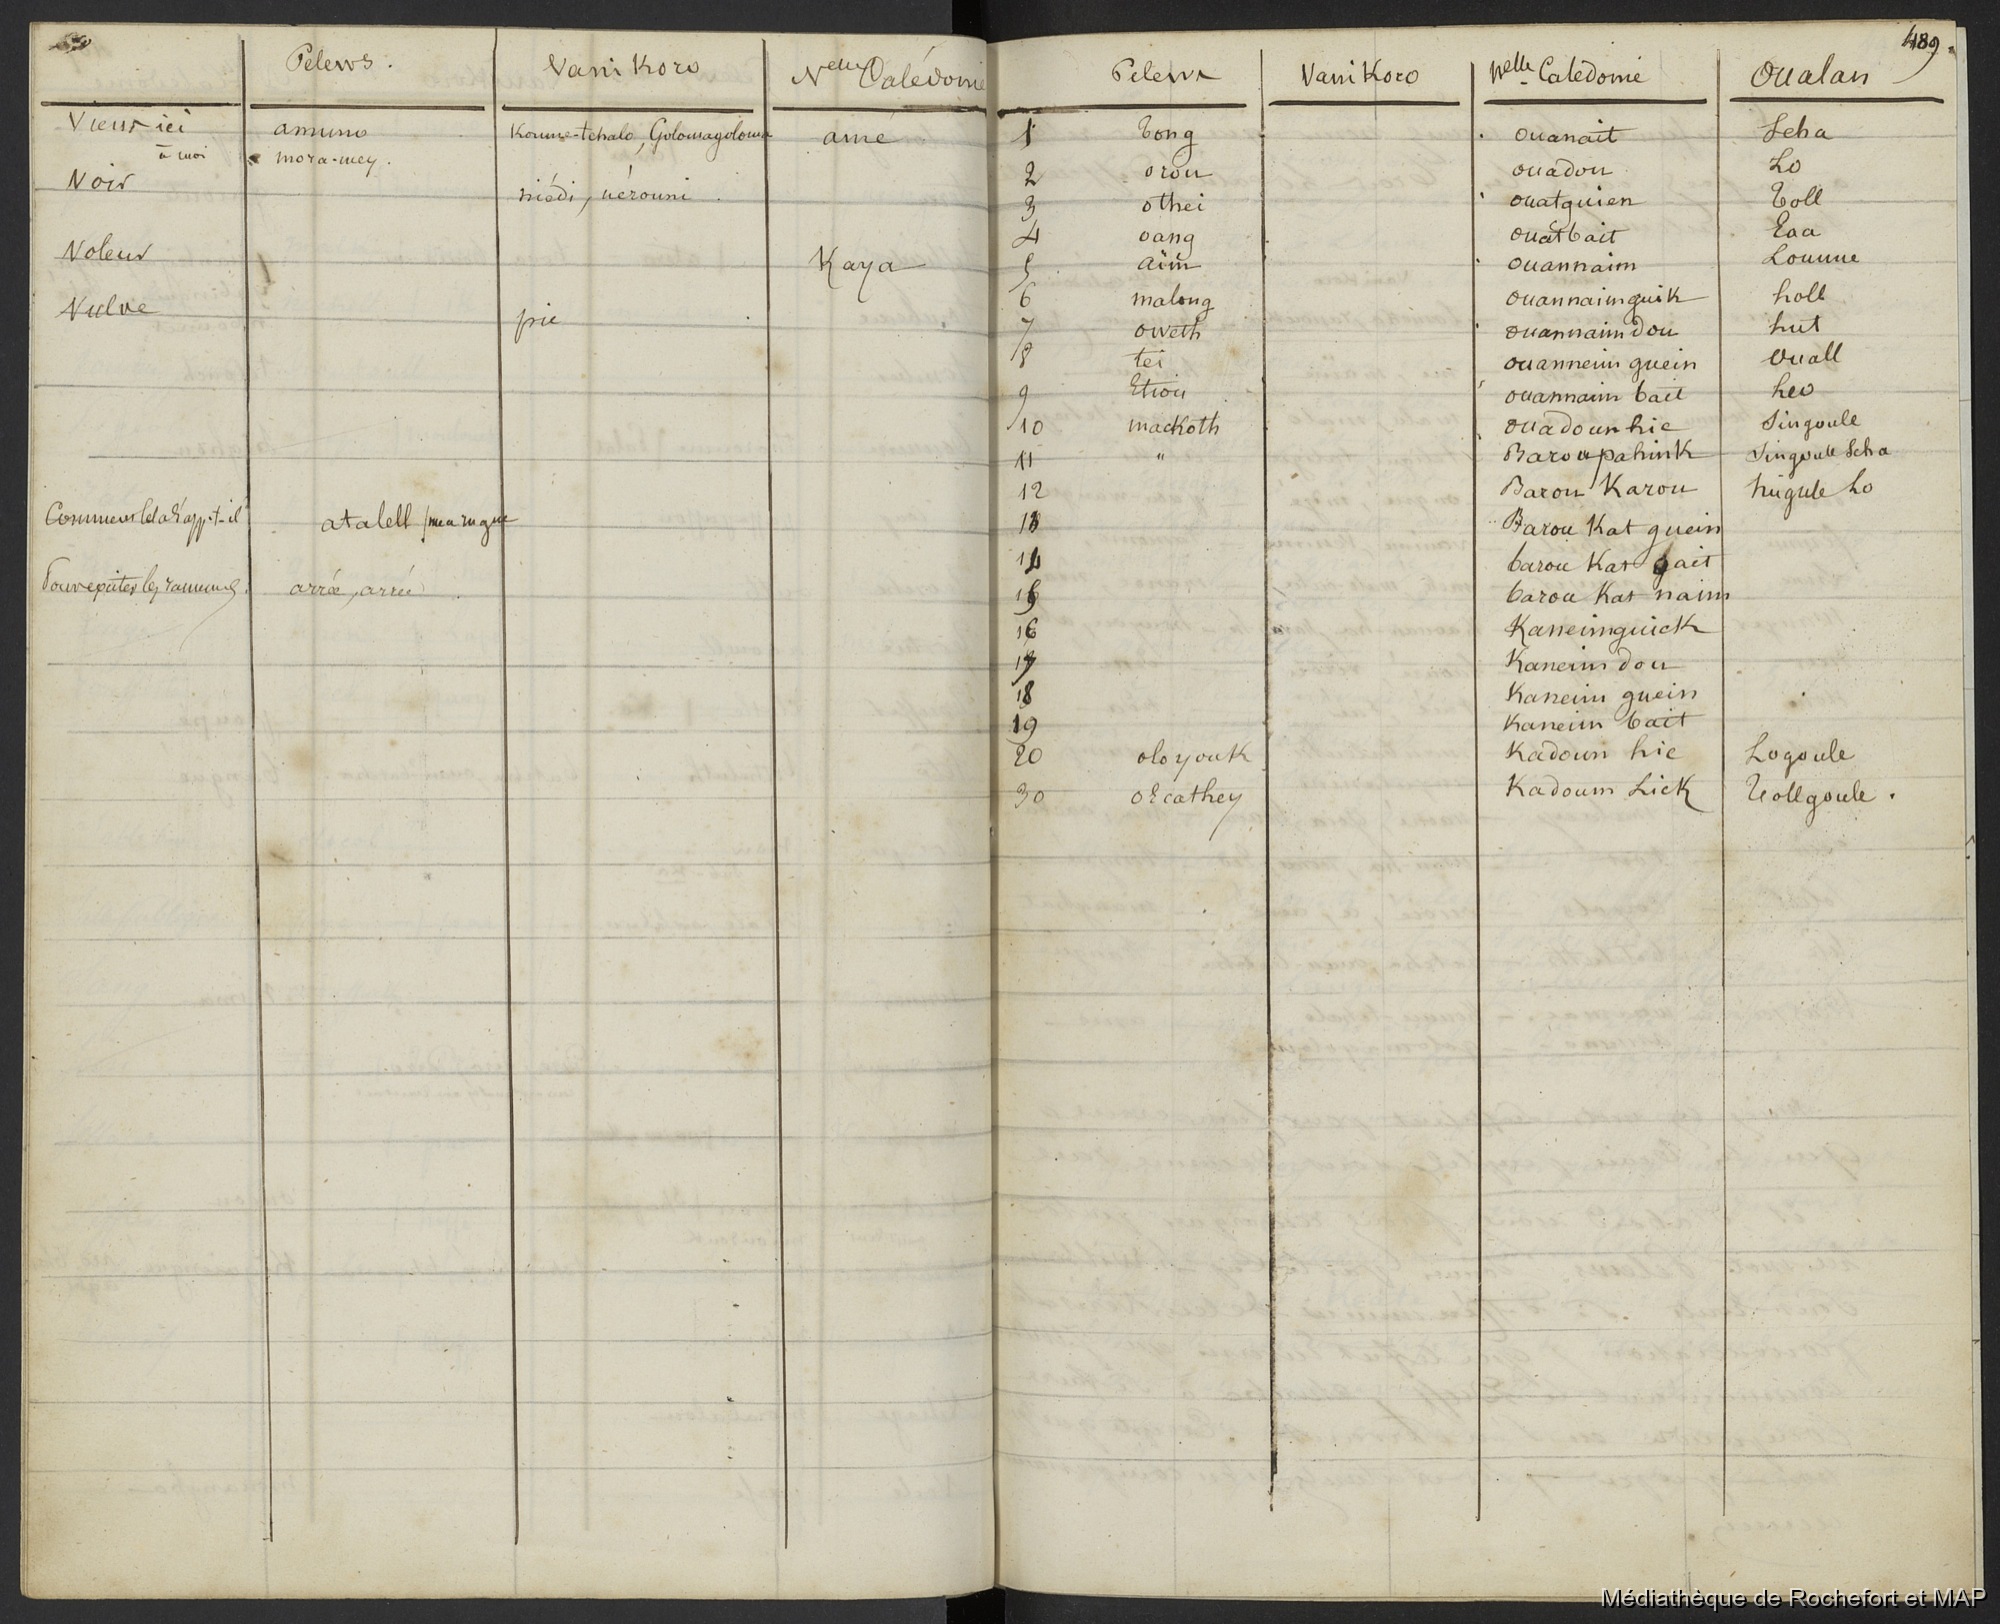 Pelews. Vanikoro Nelle Calédonie
Viens ici amuno Koume-tchalo, Golomagoloma amé
à moi mora-mey.
Noir niédi, nérouni
Voleur Kaya
Vulve prie
Comment cela s'app.t-il atalell
Pour épater les rameurs. arrée, arrée
489.
Pelews Vanikoro Nelle Calédonie Oualan
1 tong ouanait Scha
2 orou ouadou Lo
3 othei ouatguien Toll
4 oang ouatbait Eaa
5 aïm ouannaim Loume
6 malong ouannaimguik holl
7 oweth ouannaimdou hut
8 tei ouanneim guein Ouall
9 Etiou ouannaim bait heo
10 mackoth ouadounhic Singoule
11 " Baroupahink Singoule Scha
12 Barou Karou Lo
13 Barou Kat guein
14 barou Kat bait
15 barou Kat naim
16 Kaneimguick
17 Kaneim dou
18 Kaneim guein
19 Kaneim bait
20 oloyouk Kadoun hic Logoule
30 okathey Kadoum Lick Tollgoule.
Médiathèque de Rochefort et MAP